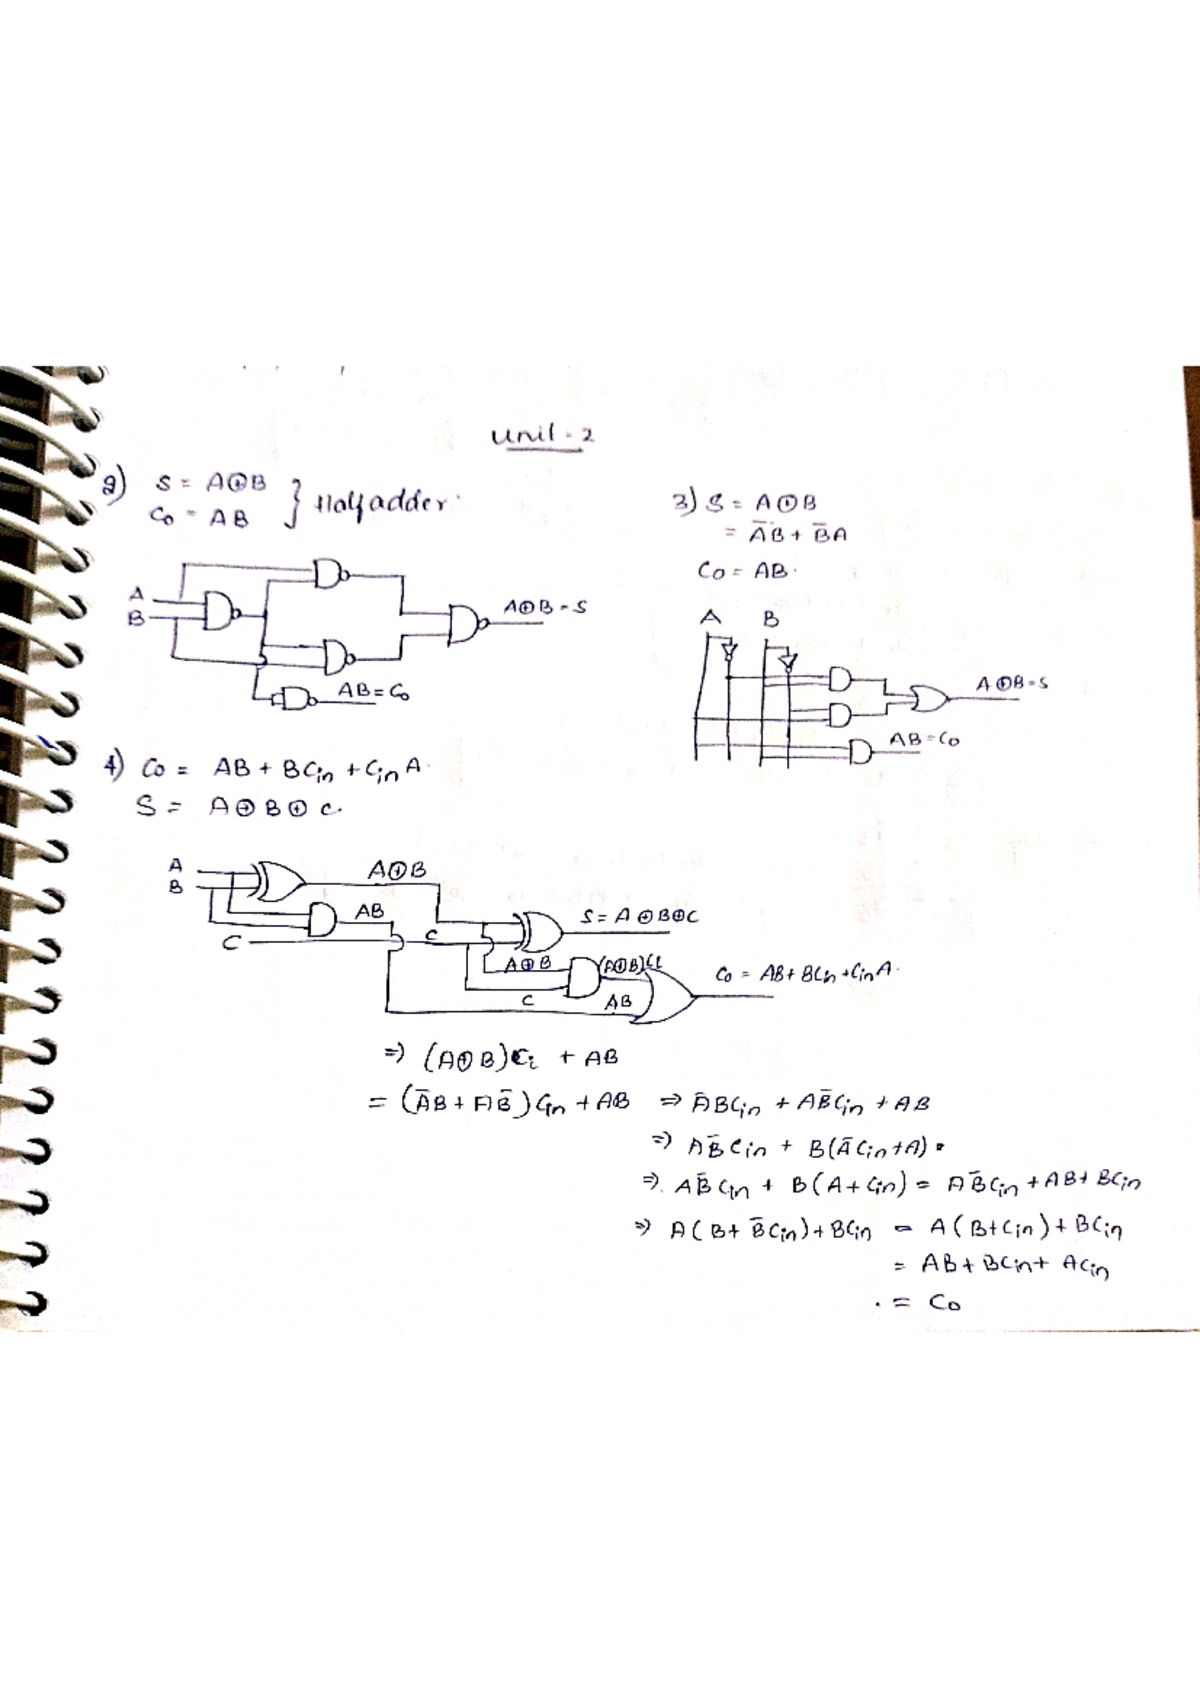 Unit - 2
2) S = A⊕B
C₀ = AB } Half adder
A
B
A⊕B = S
AB = C₀
3) S = A⊕B
= A̅B + B̅A
C₀ = AB.
A B
A⊕B = S
AB = C₀
4) C₀ = AB + BCin + CinA.
S = A⊕B⊕C.
A
B
A⊕B
AB
C
C
S = A⊕B⊕C
A⊕B
(A⊕B)Ci
C
AB
C₀ = AB + BCin + CinA.
⇒ (A⊕B)Ci + AB
= (A̅B + AB̅)Cin + AB ⇒ A̅BCin + AB̅Cin + AB
⇒ AB̅Cin + B(A̅Cin + A)
⇒ AB̅Cin + B(A + Cin) = AB̅Cin + AB + BCin
⇒ A(B + B̅Cin) + BCin = A(B + Cin) + BCin
= AB + BCin + ACin
. = C₀